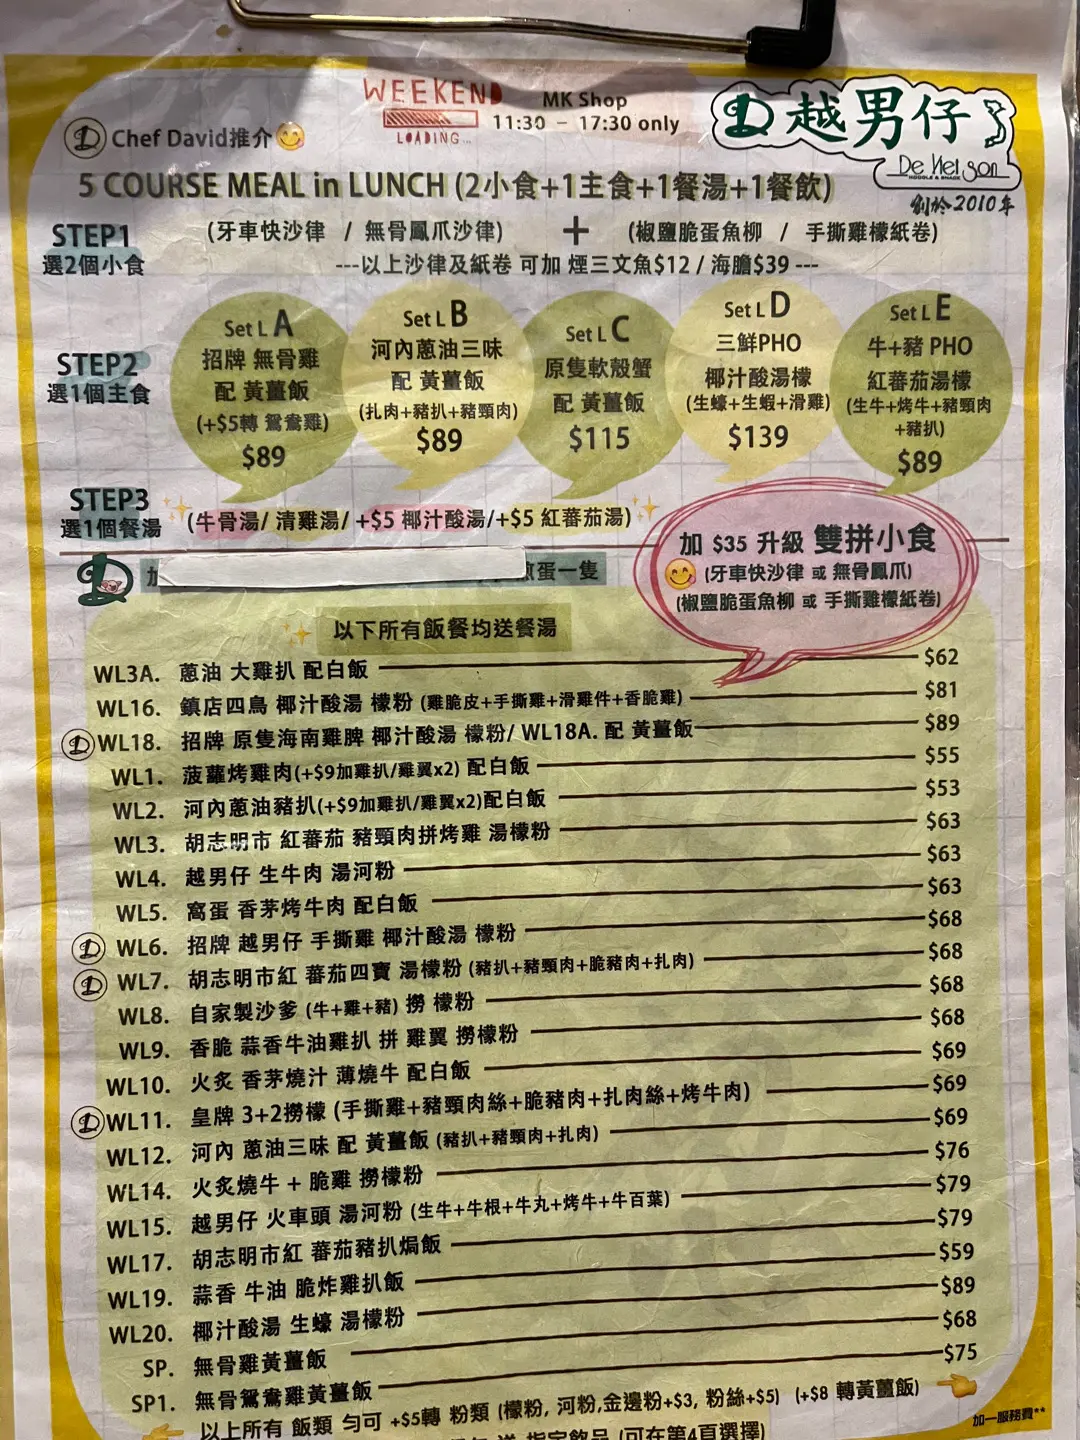 WEEKEND
LOADING...
MK Shop
11:30 - 17:30 only
D 越男仔
De Nei Son
NOODLE & SNACK
創於2010年
D Chef David推介
5 COURSE MEAL in LUNCH (2小食+1主食+1餐湯+1餐飲)
STEP1
選2個小食
(牙車快沙律 / 無骨鳳爪沙律) + (椒鹽脆蛋魚柳 / 手撕雞檬紙卷)
---以上沙律及紙卷 可加 煙三文魚$12 / 海膽$39 ---
STEP2
選1個主食
Set L A
招牌 無骨雞
配 黃薑飯
(+$5轉 鴛鴦雞)
$89
Set L B
河內蔥油三味
配 黃薑飯
(扎肉+豬扒+豬頸肉)
$89
Set L C
原隻軟殼蟹
配 黃薑飯
$115
Set L D
三鮮PHO
椰汁酸湯檬
(生蠔+生蝦+滑雞)
$139
Set L E
牛+豬 PHO
紅蕃茄湯檬
(生牛+烤牛+豬頸肉
+豬扒)
$89
STEP3
選1個餐湯
(牛骨湯/ 清雞湯/ +$5 椰汁酸湯/+$5 紅蕃茄湯)
加 $35 升級 雙拼小食
(牙車快沙律 或 無骨鳳爪)
(椒鹽脆蛋魚柳 或 手撕雞檬紙卷)
蛋一隻
以下所有飯餐均送餐湯
WL3A. 蔥油 大雞扒 配白飯 $62
WL16. 鎮店四鳥 椰汁酸湯 檬粉 (雞脆皮+手撕雞+滑雞件+香脆雞) $81
D WL18. 招牌 原隻海南雞脾 椰汁酸湯 檬粉/ WL18A. 配 黃薑飯 $89
WL1. 菠蘿烤雞肉(+$9加雞扒/雞翼x2) 配白飯 $55
WL2. 河內蔥油豬扒(+$9加雞扒/雞翼x2)配白飯 $53
WL3. 胡志明市 紅蕃茄 豬頸肉拼烤雞 湯檬粉 $63
WL4. 越男仔 生牛肉 湯河粉 $63
WL5. 窩蛋 香茅烤牛肉 配白飯 $63
D WL6. 招牌 越男仔 手撕雞 椰汁酸湯 檬粉 $68
D WL7. 胡志明市紅 蕃茄四寶 湯檬粉 (豬扒+豬頸肉+脆豬肉+扎肉) $68
WL8. 自家製沙爹 (牛+雞+豬) 撈 檬粉 $68
WL9. 香脆 蒜香牛油雞扒 拼 雞翼 撈檬粉 $68
WL10. 火炙 香茅燒汁 薄燒牛 配白飯 $69
D WL11. 皇牌 3+2撈檬 (手撕雞+豬頸肉絲+脆豬肉+扎肉絲+烤牛肉) $69
WL12. 河內 蔥油三味 配 黃薑飯 (豬扒+豬頸肉+扎肉) $69
WL14. 火炙燒牛 + 脆雞 撈檬粉 $76
WL15. 越男仔 火車頭 湯河粉 (生牛+牛根+牛丸+烤牛+牛百葉) $79
WL17. 胡志明市紅 蕃茄豬扒焗飯 $79
WL19. 蒜香 牛油 脆炸雞扒飯 $59
WL20. 椰汁酸湯 生蠔 湯檬粉 $89
SP. 無骨雞黃薑飯 $68
SP1. 無骨鴛鴦雞黃薑飯 $75
以上所有 飯類 勻可 +$5轉 粉類 (檬粉, 河粉,金邊粉+$3, 粉絲+$5) (+$8 轉黃薑飯)
加一服務費**
送 指定飲品 (可在第4頁選擇)